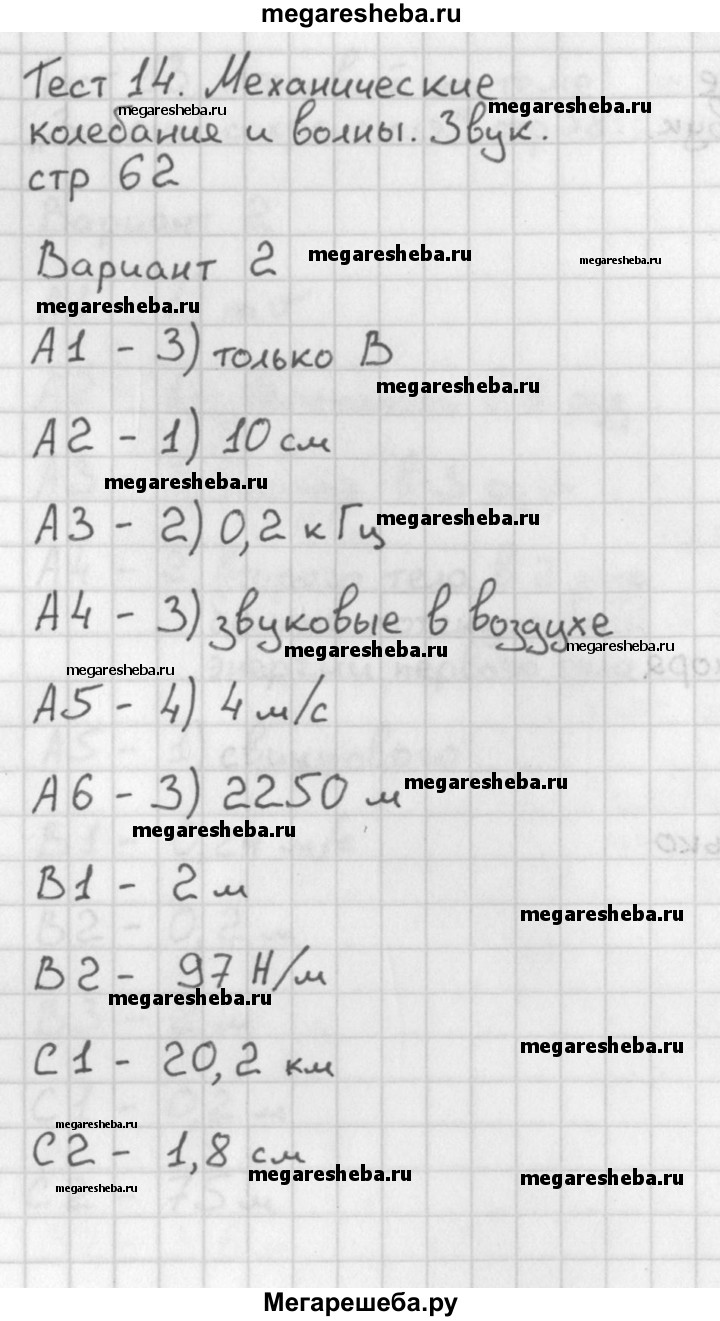 megaresheba.ru
Тест 14. Механические
megaresheba.ru
megaresheba.ru
колебания и волны. Звук.
стр 62
Вариант 2
megaresheba.ru
megaresheba.ru
megaresheba.ru
А1 - 3) только В
megaresheba.ru
А2 - 1) 10 см
megaresheba.ru
А3 - 2) 0,2 кГц
megaresheba.ru
А4 - 3) звуковые в воздухе
megaresheba.ru
megaresheba.ru
megaresheba.ru
А5 - 4) 4 м/с
А6 - 3) 2250 м
megaresheba.ru
megaresheba.ru
В1 - 2 м
megaresheba.ru
В2 - 97 Н/м
megaresheba.ru
С1 - 20,2 км
megaresheba.ru
megaresheba.ru
С2 - 1,8 см
megaresheba.ru
megaresheba.ru
megaresheba.ru
Мегарешеба.ру